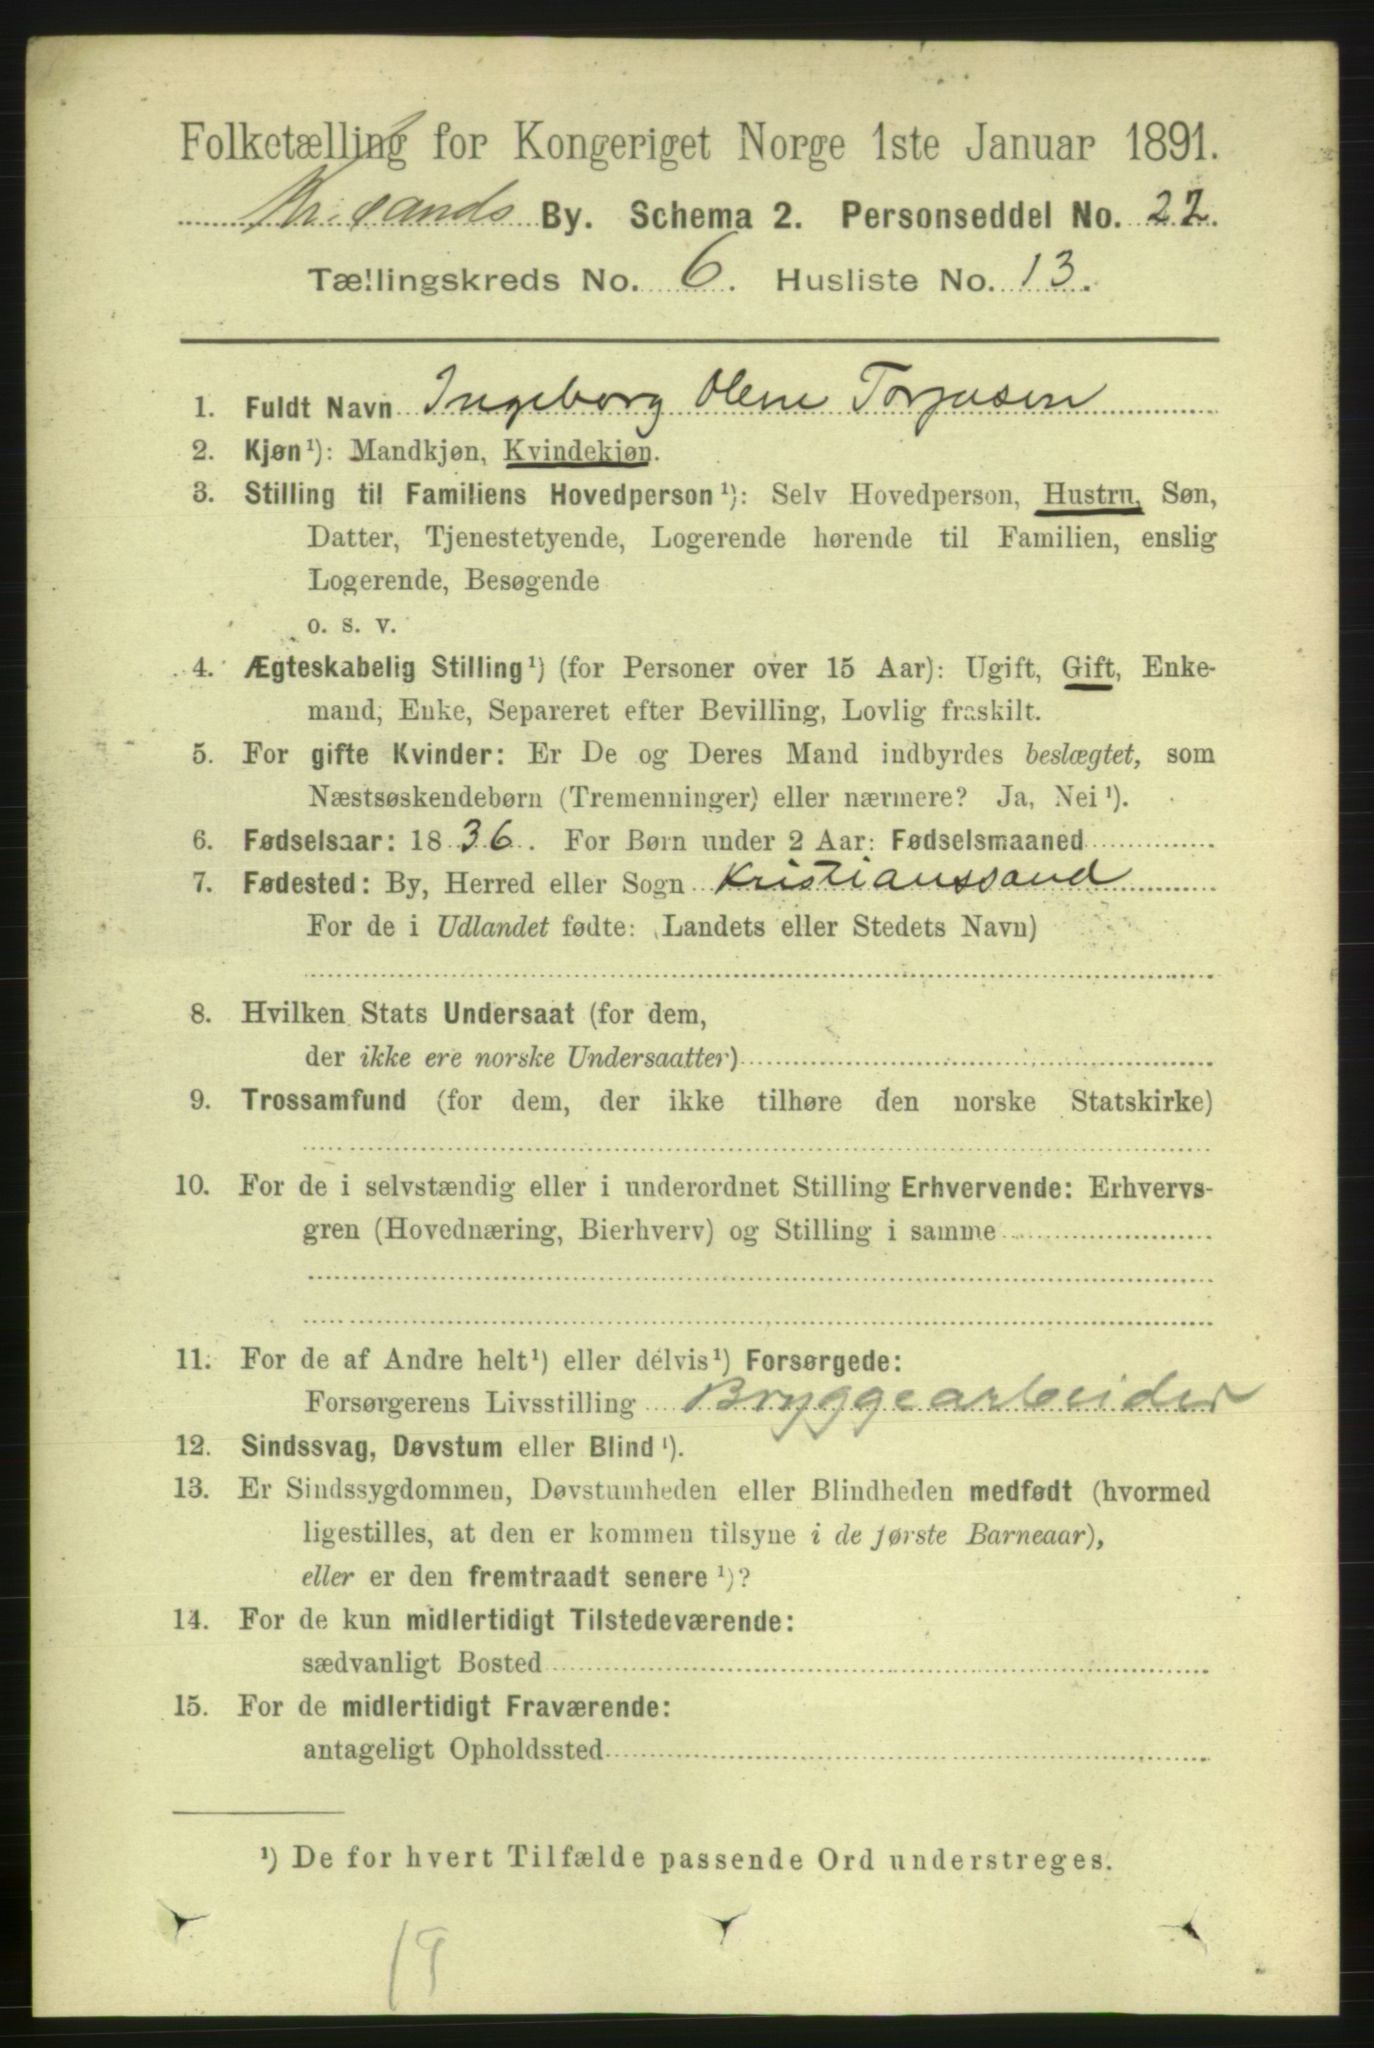 Folketælling for Kongeriget Norge 1ste Januar 1891.
Kr.sands By. Schema 2. Personseddel No. 22.
Tællingskreds No. 6. Husliste No. 13.
1. Fuldt Navn Ingeborg Olene Torjusen
2. Kjøn¹): Mandkjøn, Kvindekjøn.
3. Stilling til Familiens Hovedperson¹): Selv Hovedperson, Hustru, Søn,
Datter, Tjenestetyende, Logerende hørende til Familien, enslig
Logerende, Besøgende
o. s. v.
4. Ægteskabelig Stilling¹) (for Personer over 15 Aar): Ugift, Gift, Enke-
mand, Enke, Separeret efter Bevilling, Lovlig fraskilt.
5. For gifte Kvinder: Er De og Deres Mand indbyrdes beslægtet, som
Næstsøskendebørn (Tremenninger) eller nærmere? Ja, Nei¹).
6. Fødselsaar: 1836. For Børn under 2 Aar: Fødselsmaaned
7. Fødested: By, Herred eller Sogn Kristianssand
For de i Udlandet fødte: (Landets eller Stedets Navn)
8. Hvilken Stats Undersaat (for dem,
der ikke ere norske Undersaatter)
9. Trossamfund (for dem, der ikke tilhøre den norske Statskirke)
10. For de i selvstændig eller i underordnet Stilling Erhvervende: Erhvervs-
gren (Hovednæring, Bierhverv) og Stilling i samme
11. For de af Andre helt¹) eller delvis¹) Forsørgede:
Forsørgerens Livsstilling Bryggearbeider
12. Sindssvag, Døvstum eller Blind¹).
13. Er Sindssygdommen, Døvstumheden eller Blindheden medfødt (hvormed
ligestilles, at den er kommen tilsyne i de første Barneaar),
eller er den fremtraadt senere¹)?
14. For de kun midlertidigt Tilstedeværende:
sædvanligt Bosted
15. For de midlertidigt Fraværende:
antageligt Opholdssted
¹) De for hvert Tilfælde passende Ord understreges.
19